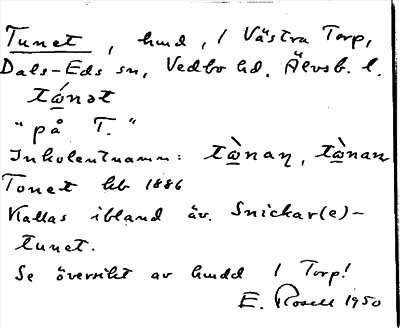 Tunet, hmd, i Västra Torp,
Dals-Eds sn, Vedbo hd, Älvsb. l.
tώnət
"på T."
Inkolentnamn: tὼnan, tὼnan
Tonet hb 1886
Kallas ibland äv. Snickar(e)-
tunet.
Se översikt av hmdd i Torp!
E. Rosell 1950